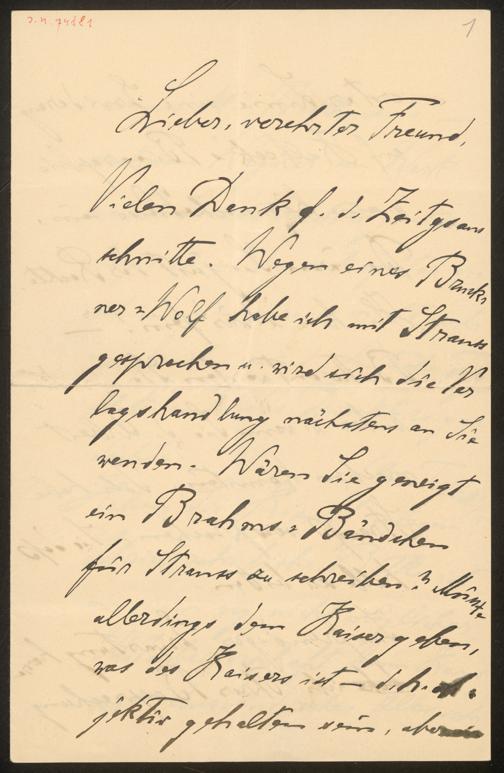 1
Lieber, verehrter Freund,
Vielen Dank f. d. Zeitgsaus
schnitte. Wegen eines Bruck-
ner-Wolf habe ich mit Strauss
gesprochen u. wird sich die Ver
lagshandlung nächstens an Sie
wenden. Wären Sie geneigt
ein Brahms-Bändchen
für Strauss zu schreiben? Müsste
allerdings dem Kaiser geben,
was des Kaisers ist – d. h. ob-
jektiv gehalten sein, aber